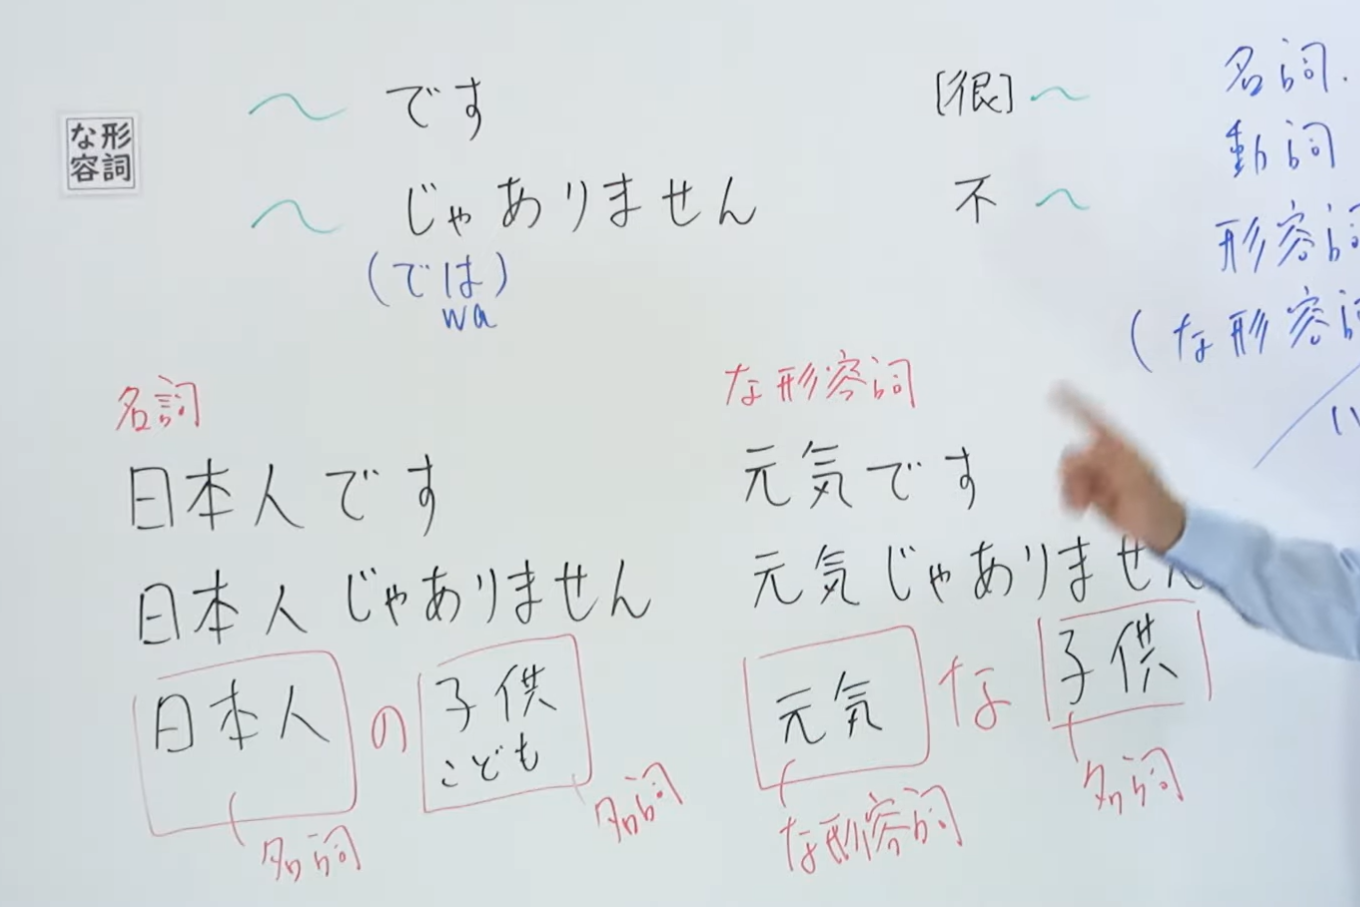 な形
容詞
～ です
[很] ～
～ じゃありません
不 ～
(では)
wa
名詞.
動詞
形容詞
(な形容詞
名詞
日本人です
日本人じゃありません
日本人 の 子供
こども
名詞
名詞
な形容詞
元気です
元気じゃありません
元気 な 子供
な形容詞
名詞